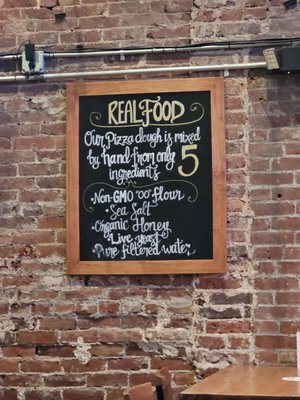 REAL FOOD
Our Pizza dough is mixed
by hand from only 5
ingredients
•Non-GMO "00" flour
•Sea Salt
•Organic Honey
•Live yeast
•Pure filtered water